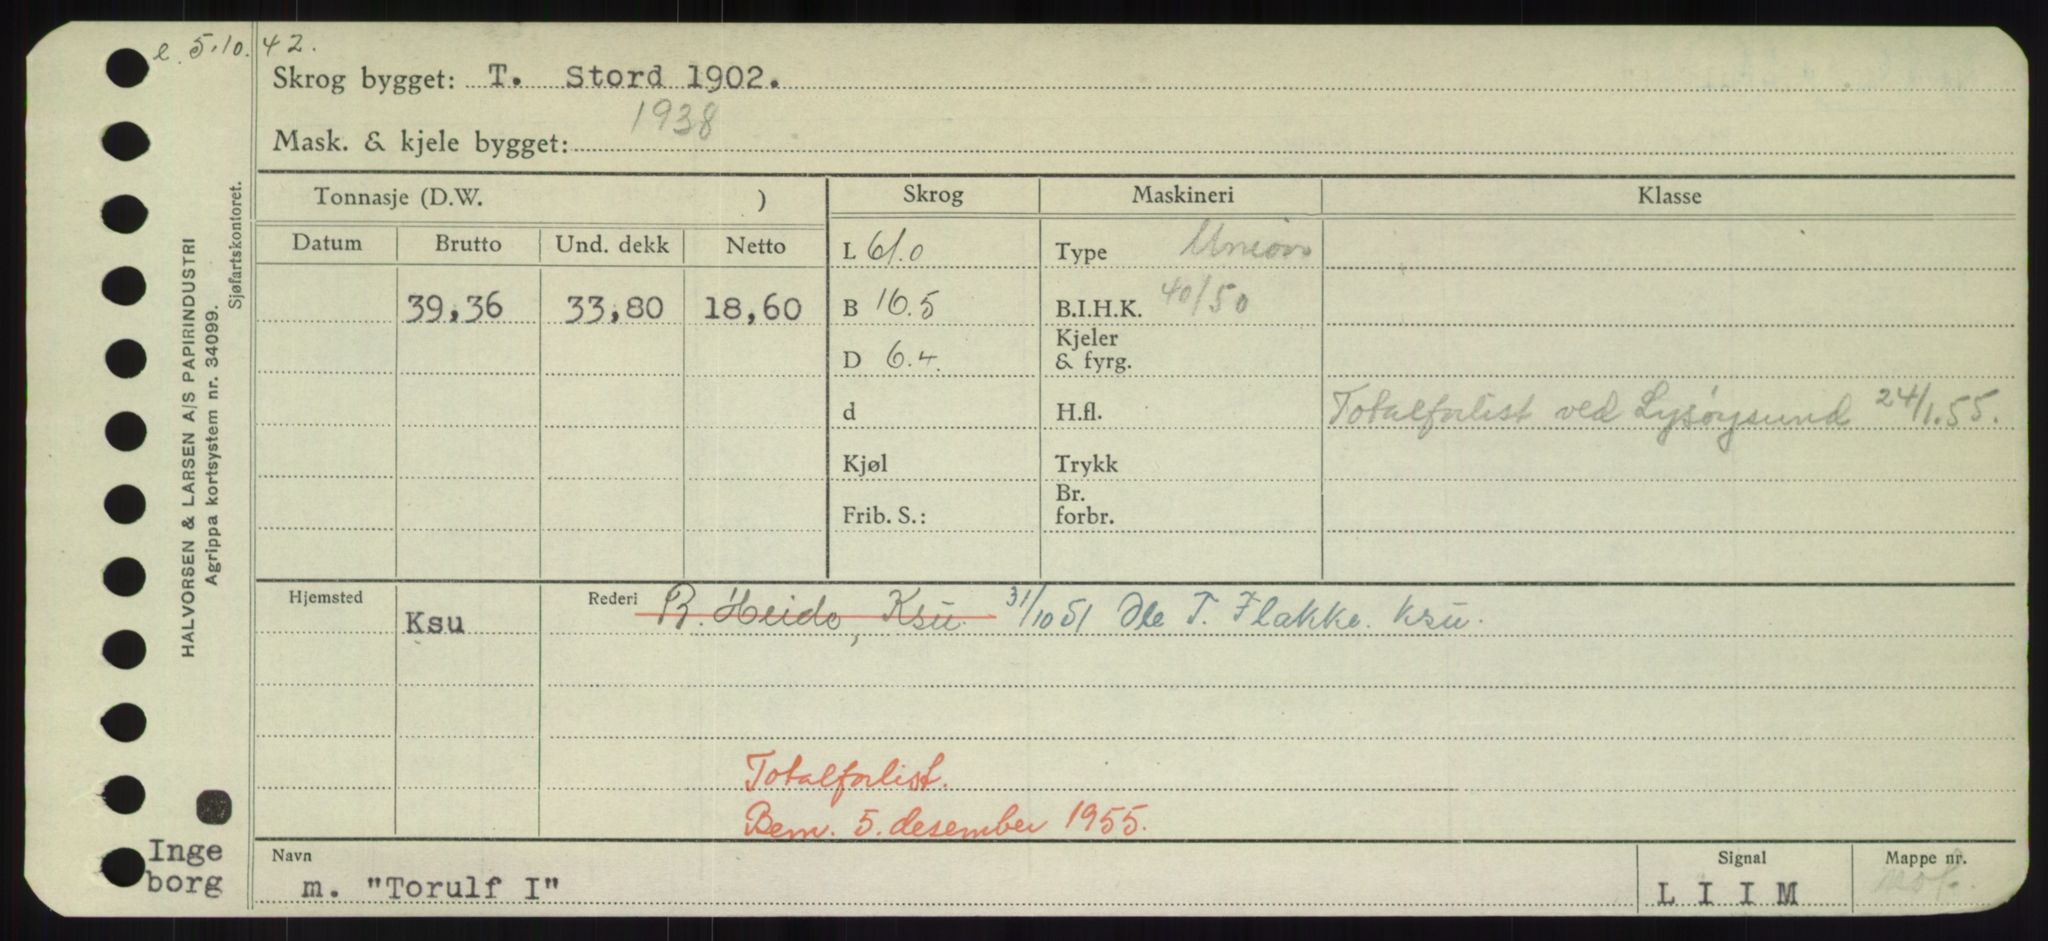 e. 5.10.42.
Skrog bygget: T. Stord 1902.
1938
Mask. & kjele bygget:
HALVORSEN & LARSEN A/S PAPIRINDUSTRI
Agrippa kortsystem nr. 34099.
Sjøfartskontoret.
Tonnasje (D.W. ) Skrog Maskineri Klasse
Datum Brutto Und. dekk Netto
L 61.0 Type Union
39,36 33,80 18,60 B 16.5 B.I.H.K. 40/50
D 6.4. Kjeler & fyrg.
d H.fl. Totalforlist ved Lysøysund 24/1.55.
Kjøl Trykk
Frib. S.: Br. forbr.
Hjemsted Ksu Rederi B. Heido, Ksu. 31/10 51 Ole T. Flakke. Ksu.
Totalforlist.
Bem. 5. desember 1955.
Inge
borg
Navn Signal Mappe nr.
m. "Torulf I" L I I M